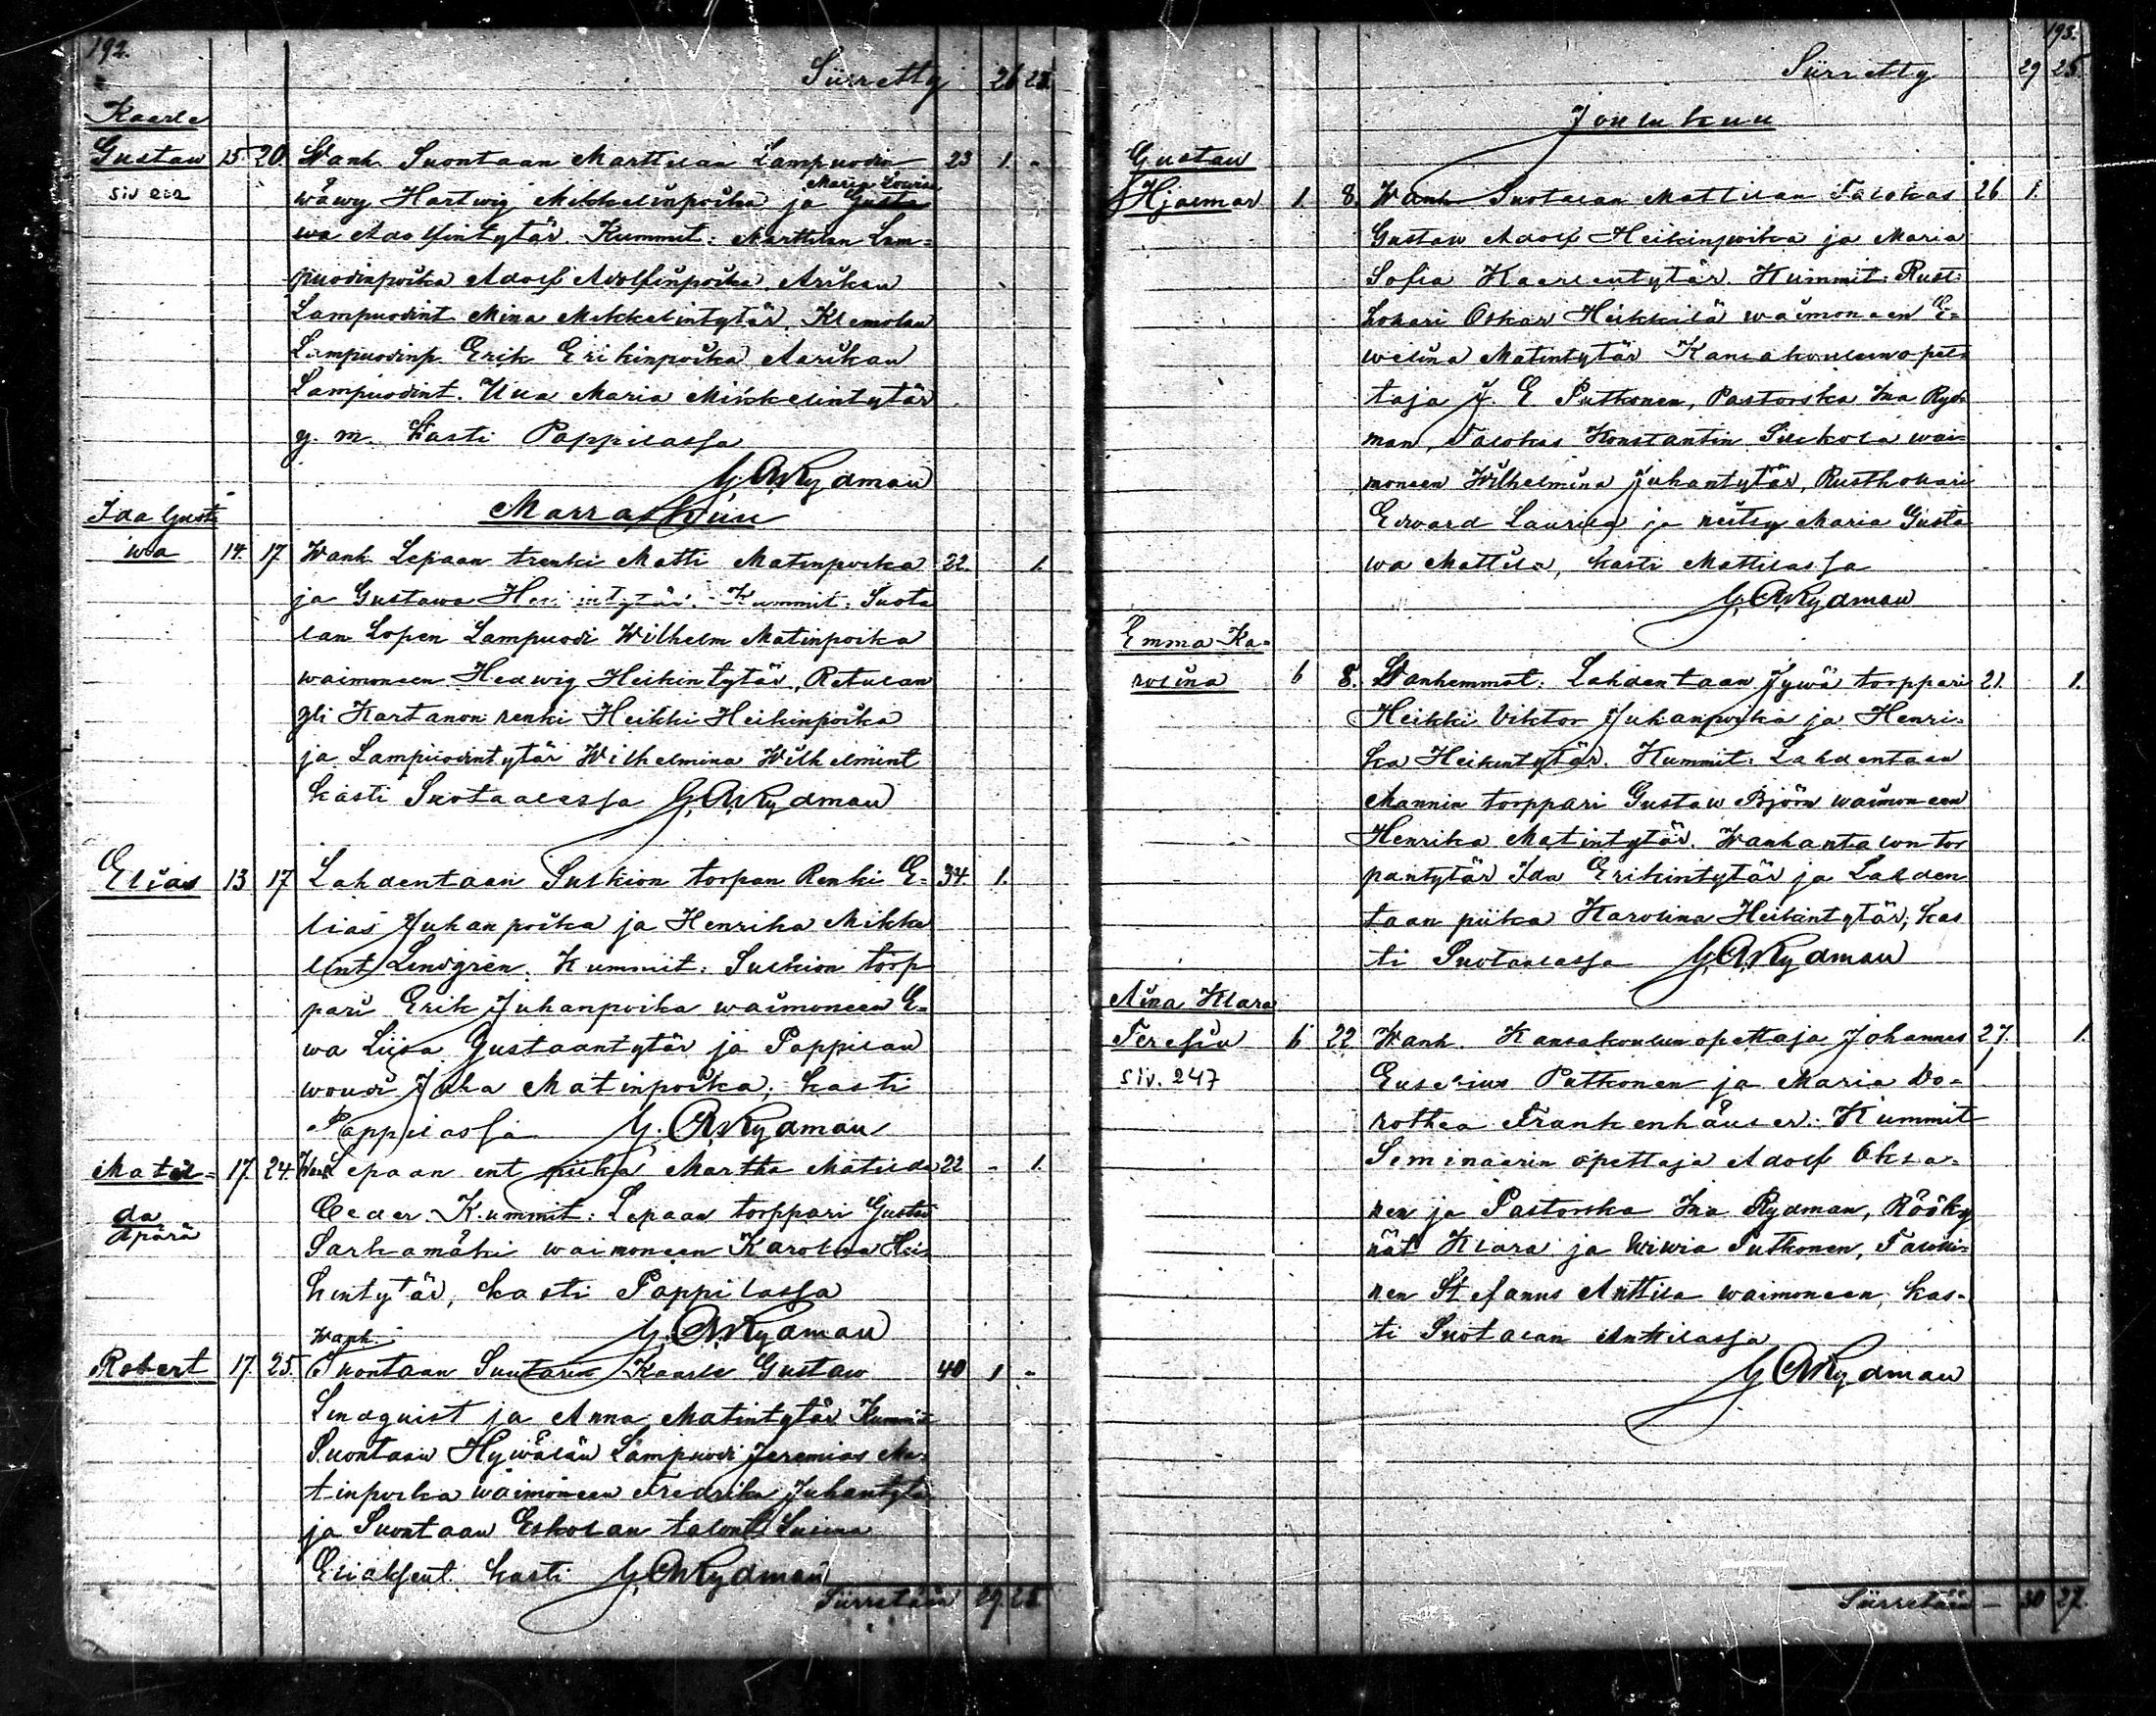 192.
Siirretty 26 25
Kaarle
Gustaw 15. 20. Wanh. Suontaan Marttilan Lampuodin 23 1. "
Maria Lowisa
wäwy Hartwig Mikkelinpoika ja Gusta
wa Adolfintytär. Kummit: Marttilan Lam=
puodinpoika Adolf Adolfinpoika Arikan
Lampuodint. Mina Mikkelintytär, Klemolan
Lampuodinp. Erik Erikinpoika Aarikan
Lampuodint. Maria Mikkelintytär
y. m. Kasti Pappilassa
G. A. Rydman
Marraskuu
Ida Gusta
wa 14. 17 Wanh. Lepaan trenki Matti Matinpoika 22. 1.
ja Gustawa Kummit: Suota
lan Lopen Lampuodi Wilhelm Matinpoika
waimoneen Hedwig Heikintytär, Retulan
yli Kartanon renki Heikki Heikinpoika
ja Lampuodintytär Wilhelmina Wilhelmint
Kasti Suotaalassa G. A. Rydman
Elias 13 17 Lahdentaan Suskion torpan Renki E= 34. 1.
lias Juhanpoika ja Henrika Mikke
lint Lindgrén. Kummit: Suskion torp
pari Erik Juhanpoika waimoneen E=
wa Liisa Gustaantytär ja Pappilan
woudi Juha Matinpoika; kasti
Pappilassa G. A. Rydman
Matil= 17. 24. Lepaan ent piika Martha Matilda 22 - 1.
da Ceder. Kummit: Lepaan torppari Gustaw
Äpärä
Sarkamäki waimoneen Karolina Hei=
kintytär, kasti Pappilassa
G. A. Rydman
Wanh.
Robert 17. 25. Suontaan Suutarin Kaarle Gustaw 40 1 "
Lindquist ja Anna Matintytär Kummit
Suontaan Hywälän Lampuodi Jeremias Ma=
tinpoika waimoneen Fredrika Juhantytär
ja Suontaan Eskolan talont Susina
Eliaksent. Kasti G. A. Rydman
Siirretään 29. 28
193.
Siirretty 29 25
Joulukuu
Gustaw
Hjalmar 1. 8. Wanh. Suotalan Mattilan Talokas 26 1.
Gustaw Adolf Heikinpoika ja Maria
Sofia Kaarlentytär. Kummit: Rust=
hollari Oskar Heikkilä waimoneen E=
welina Matintytär Kansakoulunopet
taja J. E. Putkonen, Pastorska Ina Ryd=
man, Talokas Konstantin Siukola wai=
moneen Wilhelmina Juhantytär, Rusthollari
Edward Laurila ja neitsy Maria Gusta
wa Mattila, kasti Mattilassa
G. A. Rydman
Emma Ka=
rolina 6 8. Wanhemmat: Lahdentaan Jywä torppari 21. 1.
Heikki Viktor Juhanpoika ja Henri=
ka Heikintytär. Kummit: Lahdentaan
Mannin torppari Gustaw Björn waimoneen
Henrika Matintytär. Wanhantalon tor
pantytär Ida Erikintytär ja Lahden
taan piika Karolina Heikintytär; kas
ti Suotaalassa G. A. Rydman
Aina Klara
Teresia 6 22 Wanh. Kansakoulunopettaja Johannes 27. 1.
siv. 247 Eusebius Putkonen ja Maria Do=
rothea Frankenhäuser. Kummit
Seminaarin opettaja Adolf Oksa=
nen ja Pastorska Ina Rydman, Rööky
nät Klara ja Wiwia Putkonen, Talolli=
nen Stefanus Anttila waimoneen, kas=
ti Suotalan Anttilassa
G. A. Rydman
Siirretään - 30 27.